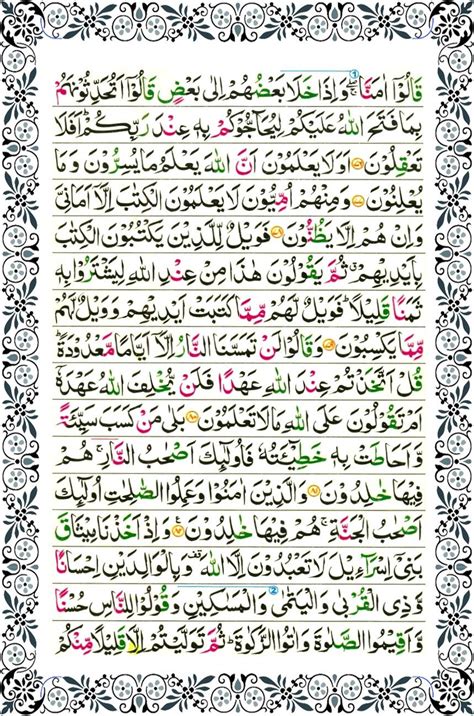 قَالُوْٓا اٰمَنَّا ۚۖ وَاِذَا خَلَا بَعْضُهُمْ اِلٰى بَعْضٍ قَالُوْٓا اَتُحَدِّثُوْنَهُمْ
بِمَا فَتَحَ اللّٰهُ عَلَيْكُمْ لِيُحَآجُّوْكُمْ بِهٖ عِنْدَ رَبِّكُمْ ؕ اَفَلَا
تَعْقِلُوْنَ ﴿۷۶﴾ اَوَلَا يَعْلَمُوْنَ اَنَّ اللّٰهَ يَعْلَمُ مَا يُسِرُّوْنَ وَمَا
يُعْلِنُوْنَ ﴿۷۷﴾ وَمِنْهُمْ اُمِّيُّوْنَ لَا يَعْلَمُوْنَ الْكِتٰبَ اِلَّآ اَمَانِىَّ
وَاِنْ هُمْ اِلَّا يَظُنُّوْنَ ﴿۷۸﴾ فَوَيْلٌ لِّلَّذِيْنَ يَكْتُبُوْنَ الْكِتٰبَ
بِاَيْدِيْهِمْ ۗ ثُمَّ يَقُوْلُوْنَ هٰذَا مِنْ عِنْدِ اللّٰهِ لِيَشْتَرُوْا بِهٖ
ثَمَنًا قَلِيْلًا ؕ فَوَيْلٌ لَّهُمْ مِّمَّا كَتَبَتْ اَيْدِيْهِمْ وَوَيْلٌ لَّهُمْ
مِّمَّا يَكْسِبُوْنَ ﴿۷۹﴾ وَقَالُوْا لَنْ تَمَسَّنَا النَّارُ اِلَّآ اَيَّامًا مَّعْدُوْدَةً ؕ
قُلْ اَتَّخَذْتُمْ عِنْدَ اللّٰهِ عَهْدًا فَلَنْ يُّخْلِفَ اللّٰهُ عَهْدَهٗٓ
اَمْ تَقُوْلُوْنَ عَلَى اللّٰهِ مَا لَا تَعْلَمُوْنَ ﴿۸۰﴾ بَلٰى مَنْ كَسَبَ سَيِّئَةً
وَّاَحَاطَتْ بِهٖ خَطِيْٓئَتُهٗ فَاُولٰٓئِكَ اَصْحٰبُ النَّارِ ۚ هُمْ
فِيْهَا خٰلِدُوْنَ ﴿۸۱﴾ وَالَّذِيْنَ اٰمَنُوْا وَعَمِلُوا الصّٰلِحٰتِ اُولٰٓئِكَ
اَصْحٰبُ الْجَنَّةِ ۚ هُمْ فِيْهَا خٰلِدُوْنَ ﴿۸۲﴾ وَاِذْ اَخَذْنَا مِيْثَاقَ
بَنِىْٓ اِسْرَآءِيْلَ لَا تَعْبُدُوْنَ اِلَّا اللّٰهَ وَبِالْوَالِدَيْنِ اِحْسَانًا
وَّذِى الْقُرْبٰى وَالْيَتٰمٰى وَالْمَسٰكِيْنِ وَقُوْلُوْا لِلنَّاسِ حُسْنًا
وَّاَقِيْمُوا الصَّلٰوةَ وَاٰتُوا الزَّكٰوةَ ؕ ثُمَّ تَوَلَّيْتُمْ اِلَّا قَلِيْلًا مِّنْكُمْ